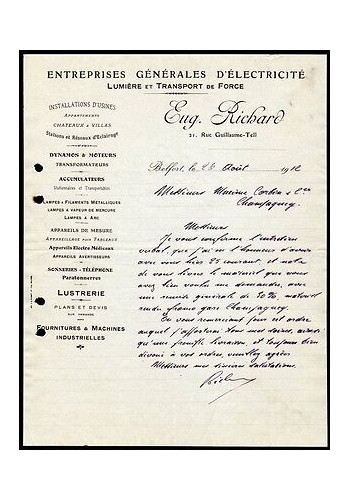 ENTREPRISES GÉNÉRALES D'ÉLECTRICITÉ
LUMIÈRE ET TRANSPORT DE FORCE
INSTALLATIONS D'USINES
APPARTEMENTS
CHATEAUX & VILLAS
Stations et Réseaux d'Eclairage
DYNAMOS & MOTEURS
TRANSFORMATEURS
ACCUMULATEURS
Stationnaires et Transportables
LAMPES A FILAMENTS MÉTALLIQUES
LAMPES A VAPEUR DE MERCURE
LAMPES A ARC
APPAREILS DE MESURE
APPAREILLAGE POUR TABLEAUX
Appareils Electro Médicaux
APPAREILS AVERTISSEURS
SONNERIES - TÉLÉPHONE
Paratonnerres
LUSTRERIE
PLANS ET DEVIS
SUR DEMANDE
FOURNITURES & MACHINES
INDUSTRIELLES
Eug. Richard
21, Rue Guillaume-Tell
Belfort, le 26 Août 1912
Messieurs Maxime Corbin & Cie
Champagney
Messieurs
Je vous confirme l'entretien
verbal que j'ai eu l'honneur d'avoir
avec vous hier 25 courant, et de
vous livrer le matériel que vous
avez bien voulu me demander, avec
une remise générale de 10% matériel
rendu franco gare Champagney.
En vous remerciant pour cet ordre
auquel j'apporterai tous mes soins, ainsi
qu'une prompte livraison, et toujours bien
dévoué à vos ordres, veuillez agréer
Messieurs mes sincères salutations.